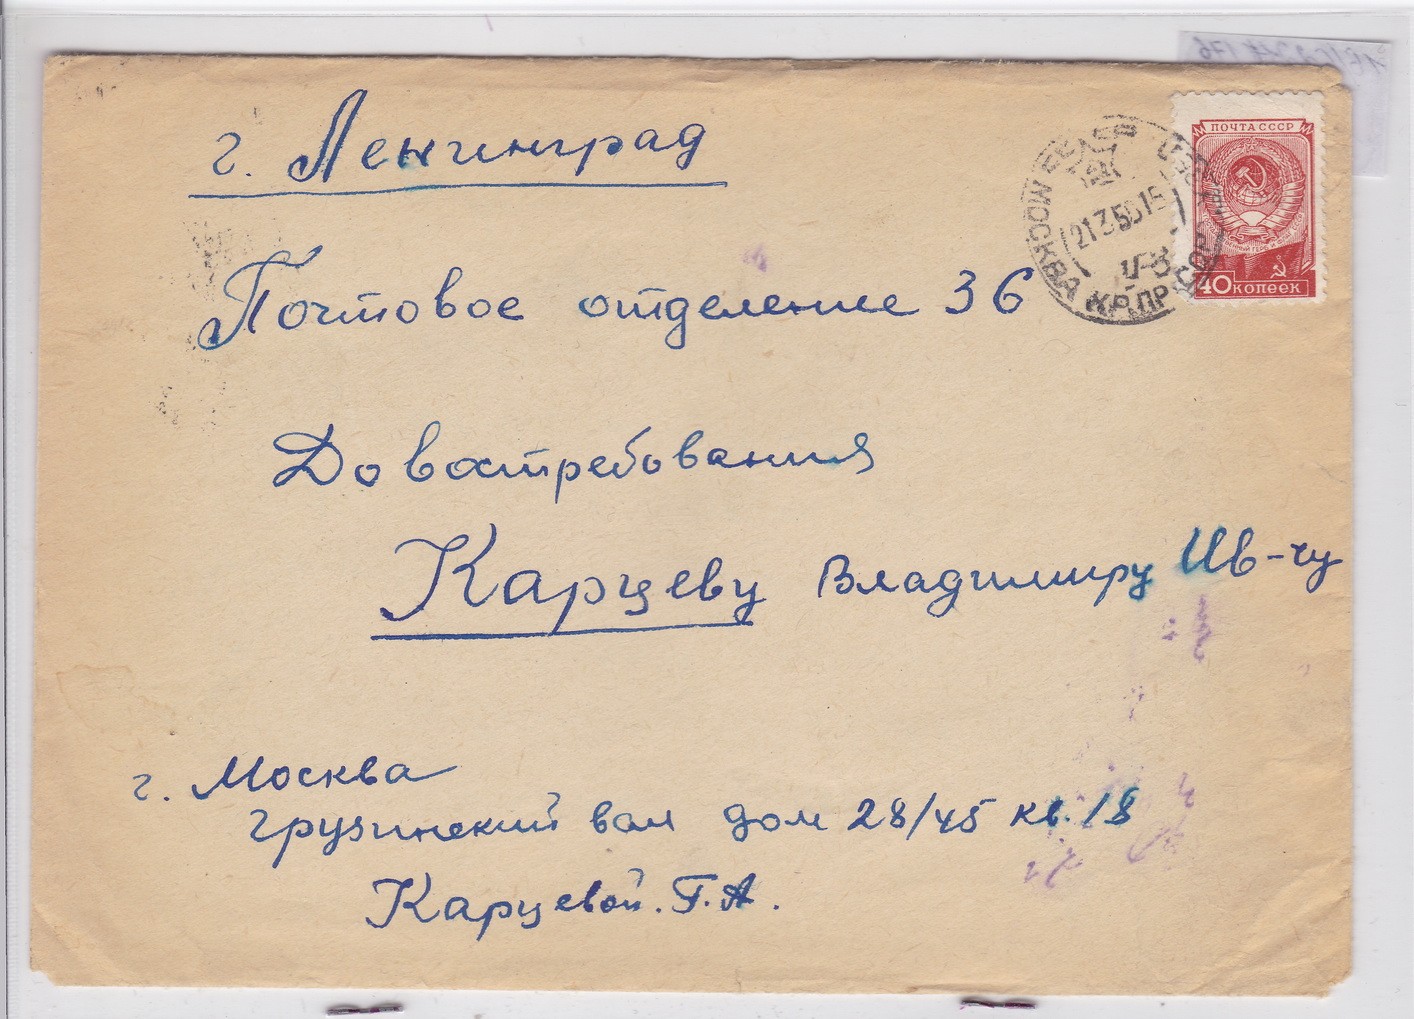 г. Ленинград
Почтовое отделение 36
До востребования
Карцеву Владимиру Ив-чу
г. Москва
Грузинский вал дом 28/45 кв. 18
Карцевой. Г. А.
ПОЧТА СССР
40 КОПЕЕК
МОСКВА КР.ПР